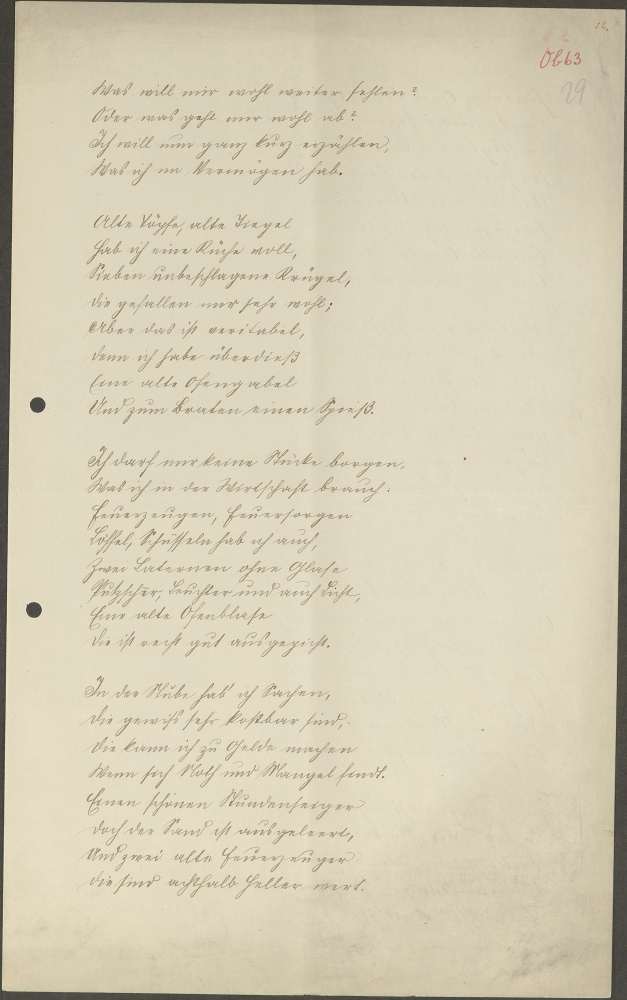 12.
Ob63
29
Was will mir wohl weiter fehlen?
Oder was geht mir wohl ab?
Ich will nun ganz kurz erzählen,
Was ich an Vermögen hab.
Alte Töpfe, alte Tiegel
Hab ich eine Küche voll,
Sieben unbeschlagene Krügel,
Die gefallen mir sehr wohl;
Aber das ist veritabel,
Denn ich habe überdieß
Eine alte Ofengabel
Und zum Braten einen Spieß.
Ich darf mir keine Stücke borgen.
Was ich in der Wirtschaft brauch:
Feuerzeugen, Feuersorgen
Löffel, Schüsseln hab ich auch,
Zwei Laternen ohne Glase
Putzscher, Leuchter und auch Licht,
Eine alte Ofenblase
Die ist recht gut ausgepicht.
In der Stube hab' ich Sachen,
Die gewiß sehr kostbar sind,
Die kann ich zu Gelde machen
Wenn sich Noth und Mangel findt.
Einen schönen Stundenseiger
Doch der Sand ist ausgeleert,
Und zwei alte Feuerzeuger
Die sind achthalb Heller wert.